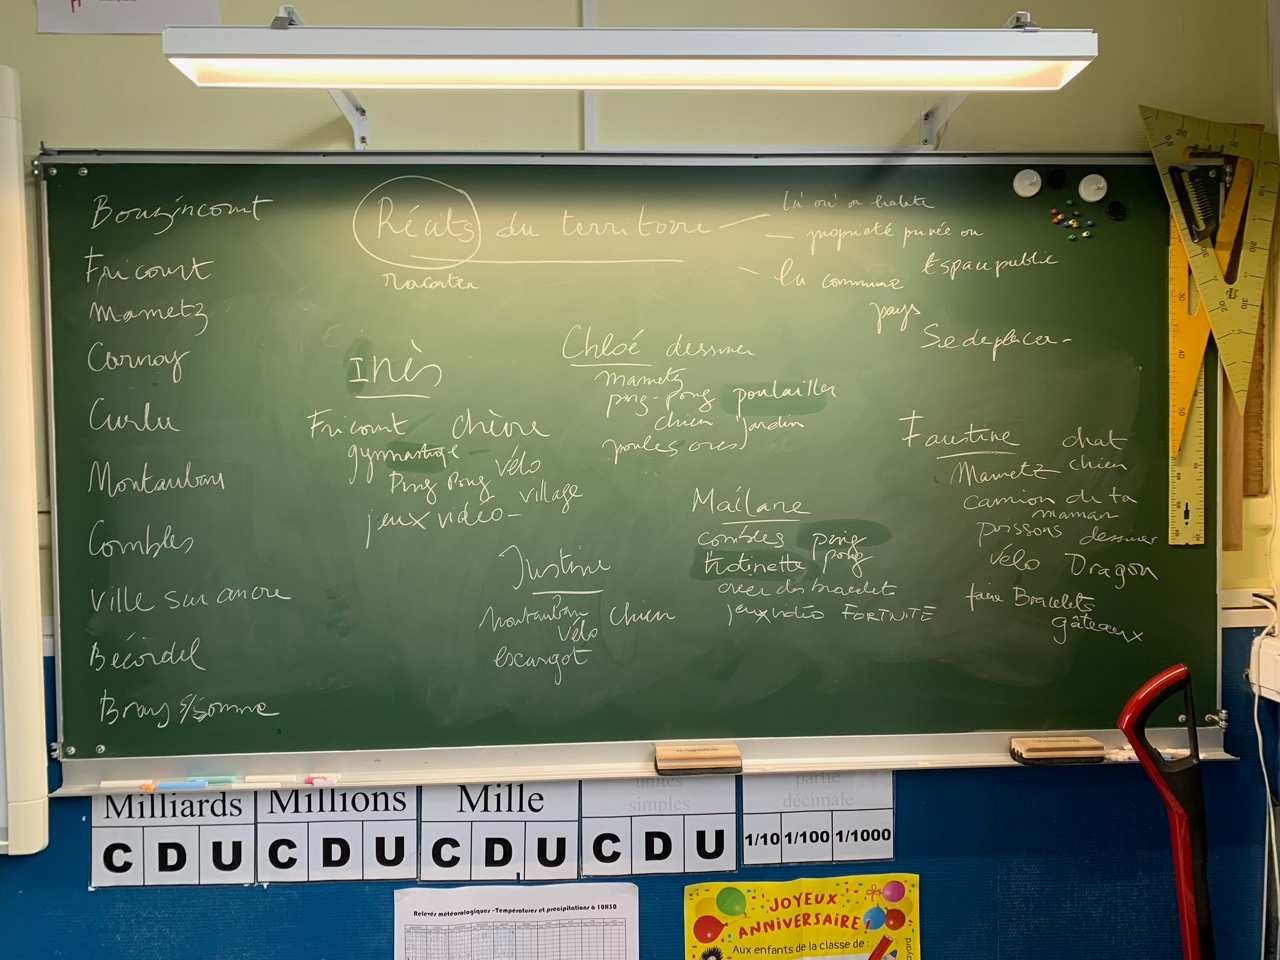 Bouzincourt
Fricourt
Mametz
Carnoy
Curlu
Montauban
Combles
Ville sur ancre
Bécordel
Bray s/somme
Récits du territoire
raconter
là où on habite
propriété privée ou
Espace public
la commune
pays
Se deplacer
Inès
Fricourt chèvre
gymnastique
Ping Pong vélo
village
jeux vidéo
Chloé dessiner
mametz
ping-pong poulailler
chien jardin
poules oies
Justine
montauban chien
vélo
escargot
Maïlane
combles ping
trotinette pong
créer des bracelets
jeux vidéo FORTNITE
Faustine chat
Mametz chien
camion de ta
maman
poissons dessiner
vélo Dragon
faire Bracelets
gâteaux
Milliards Millions Mille unités simples partie décimale
C D U C D U C D U C D U 1/10 1/100 1/1000
Relevés météorologiques -Températures et précipitations à 10H30
JOYEUX
ANNIVERSAIRE!
Aux enfants de la classe de :